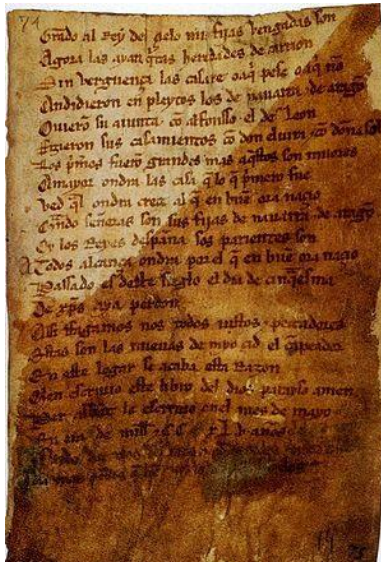 74
Grado al Rey del çielo mis fijas vengadas son
Agora las ayan q̃tas heredades de carrion
Sin verguença las casare o aq̃ pese o aq̃ nõ
Andidieron en pleytos los de nauarra & de aragõ
Ouieron su aiunta cõ alfonsso el de Leon
Fizieron sus casamientos cõ don eluira & cõ doña sol
Los p̃meros fueron grandes mas aq̃stos son miiores
A mayor ondra las casa q̃ lo q̃ p̃mero fue
Ved q̃l ondra creçe al q̃ en buẽ ora naçio
señoras son sus fijas de nauarra & de aragõ
Oy los Reyes despaña sos parientes son
A Todos alcança ondra por el q̃ en buẽ ora naçio
Passado es deste sieglo el dia de cinq̃esma
De xp̃s aya perdon
Assi ffagamos nos todos iustos & pecadores
Estas son las nueuas de myo çid el cãpeador
En este logar se acaba esta Razon
Quien escriuio este libro del dios parayso amen
Per abbat le escriuio enel mes de mayo
En era de mill & C.C xL.v. años